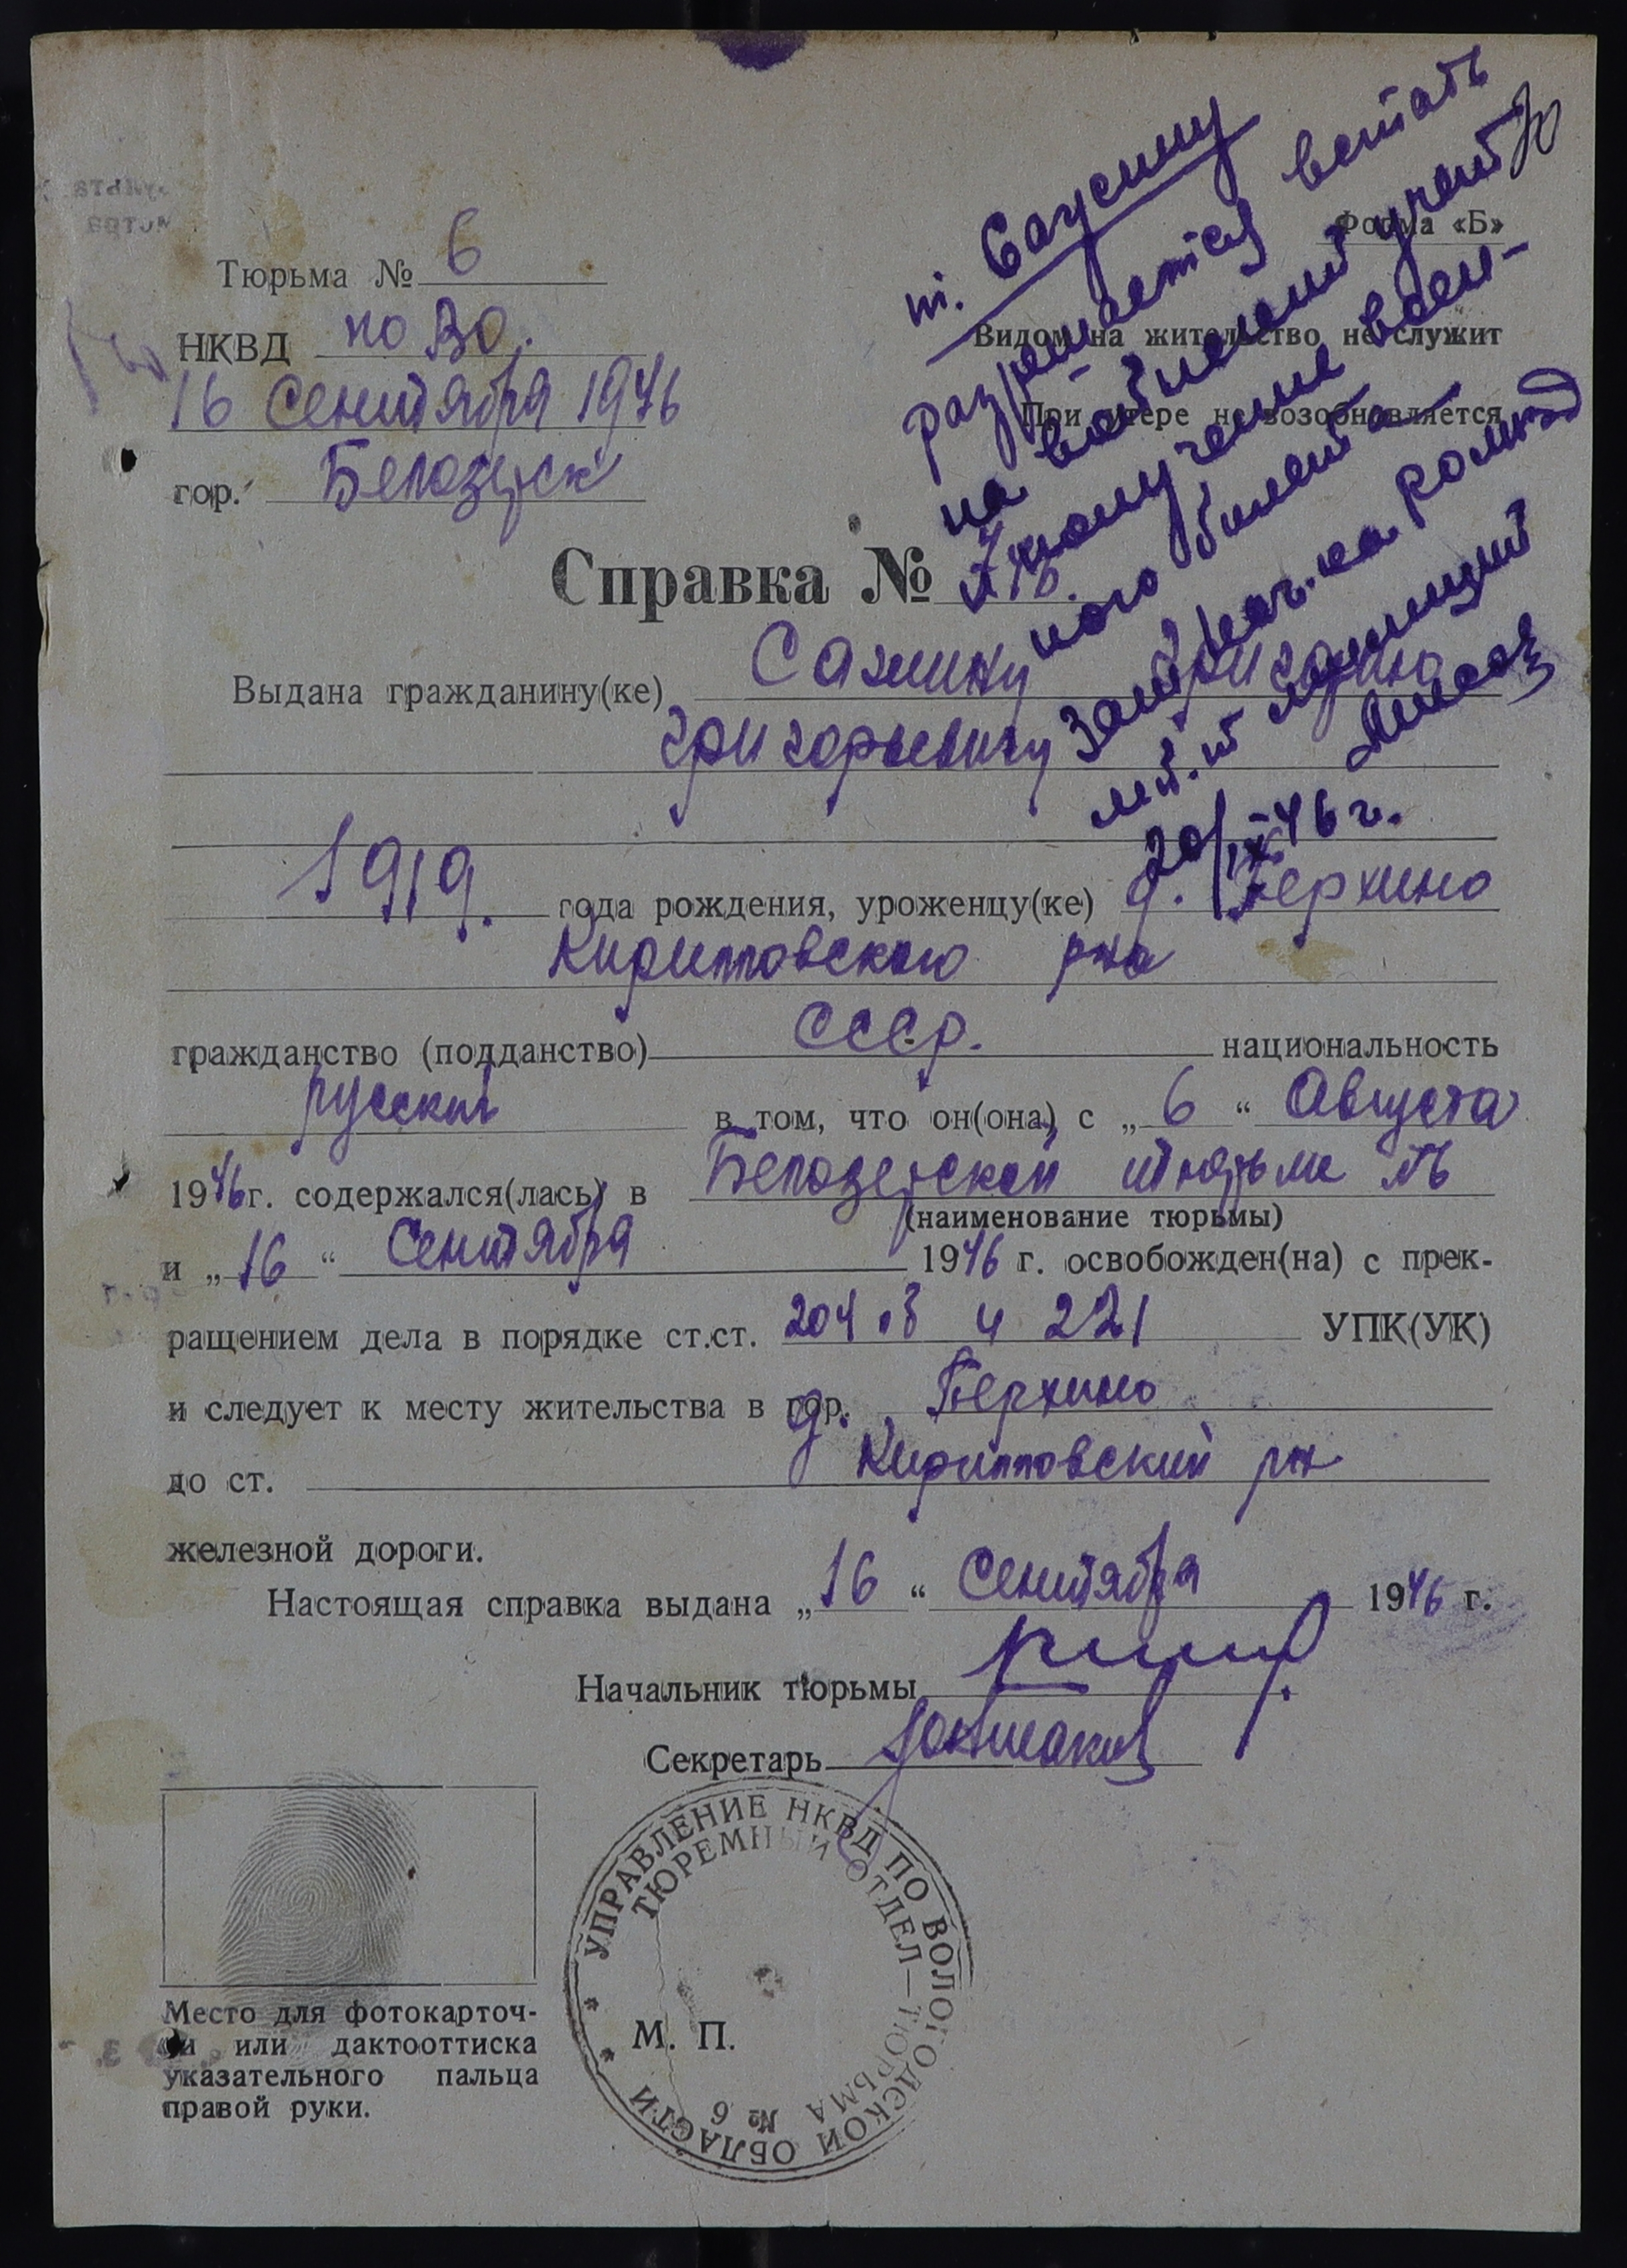 Тюрьма № 6
НКВД по ВО.
16 Сентября 1946
гор. Белозерск
Форма «Б»
Видом на жительство не служит
При утере не возобновляется
т. Саусину
разрешается встать
на воинский учет
и получение воен-
ного билета
Зам. нач.
мл. л-т милиции
20/IX-46 г.
Справка №
Выдана гражданину(ке) Сажину
Григорьевичу
1919. года рождения, уроженцу(ке) д. Верхино
Кирилловского р-на
гражданство (подданство) СССР. национальность
русский в том, что он(она) с „6“ Августа
1946 г. содержался(лась) в Белозерской тюрьме №6
(наименование тюрьмы)
и „16“ Сентября 1946 г. освобожден(на) с прек-
ращением дела в порядке ст.ст. 204 и 221 УПК(УК)
и следует к месту жительства в гор. д. Верхино
до ст. Кирилловский р-н
железной дороги.
Настоящая справка выдана „16“ Сентября 1946 г.
Начальник тюрьмы
Секретарь
УПРАВЛЕНИЕ НКВД ПО ВОЛОГОДСКОЙ ОБЛАСТИ
ТЮРЕМНЫЙ ОТДЕЛ — ТЮРЬМА № 6
М. П.
Место для фотокарточ-
ки или дактооттиска
указательного пальца
правой руки.